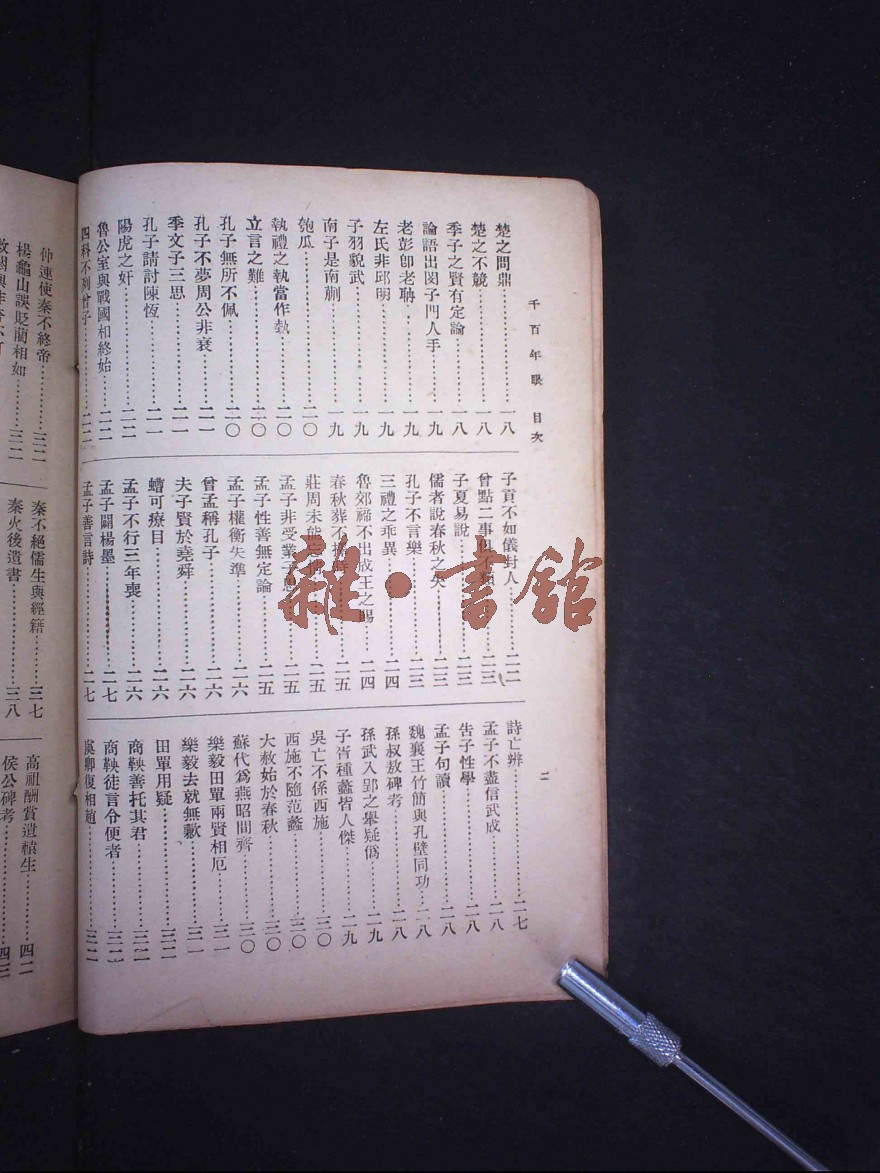 千百年眼 目次
二
楚之問鼎…………一八
楚之不競…………一八
季子之賢有定論…………一八
論語出閔子門人手…………一九
老彭卽老聃…………一九
左氏非邱明…………一九
子羽貌武…………一九
南子是南蒯…………一九
匏瓜…………二〇
執禮之執當作埶…………二〇
立言之難…………二〇
孔子無所不佩…………二〇
孔子不夢周公非衰…………二一
季文子三思…………二一
孔子請討陳恆…………二一
陽虎之奸…………二二
魯公室與戰國相終始…………二二
四科不列曾子…………二二
子貢不如儀封人…………二二
曾點二事俱不類…………二三
子夏易說…………二三
儒者說春秋之失…………二三
孔子不言樂…………二三
三禮之乖異…………二四
魯郊禘不出成王之賜…………二四
春秋葬不…………二五
莊周未能忘情…………二五
孟子非受業子思…………二五
孟子性善無定論…………二五
孟子權衡失準…………二六
曾孟稱孔子…………二六
夫子賢於堯舜…………二六
螬可療目…………二六
孟子不行三年喪…………二六
孟子闢楊墨…………二七
孟子善言詩…………二七
詩亡辨…………二七
孟子不盡信武成…………二八
告子性學…………二八
孟子句讀…………二八
魏襄王竹簡與孔壁同功…………二八
孫叔敖碑考…………二八
孫武入郢之舉疑僞…………二九
子胥種蠡皆人傑…………二九
吳亡不係西施…………三〇
西施不隨范蠡…………三〇
大赦始於春秋…………三〇
蘇代爲燕昭間齊…………三〇
樂毅田單兩賢相厄…………三一
樂毅去就無歉…………三一
田單用疑…………三二
商鞅善托其君…………三二
商鞅徒言令便者…………三二
虞卿復相趙…………三二
仲連使秦不終帝…………三二
楊龜山誤貶藺相如…………三二
秦不絕儒生與經籍…………三七
秦火後遺書…………三八
高祖酬賞遺轅生…………四二
侯公碑考…………四三
雜·書館